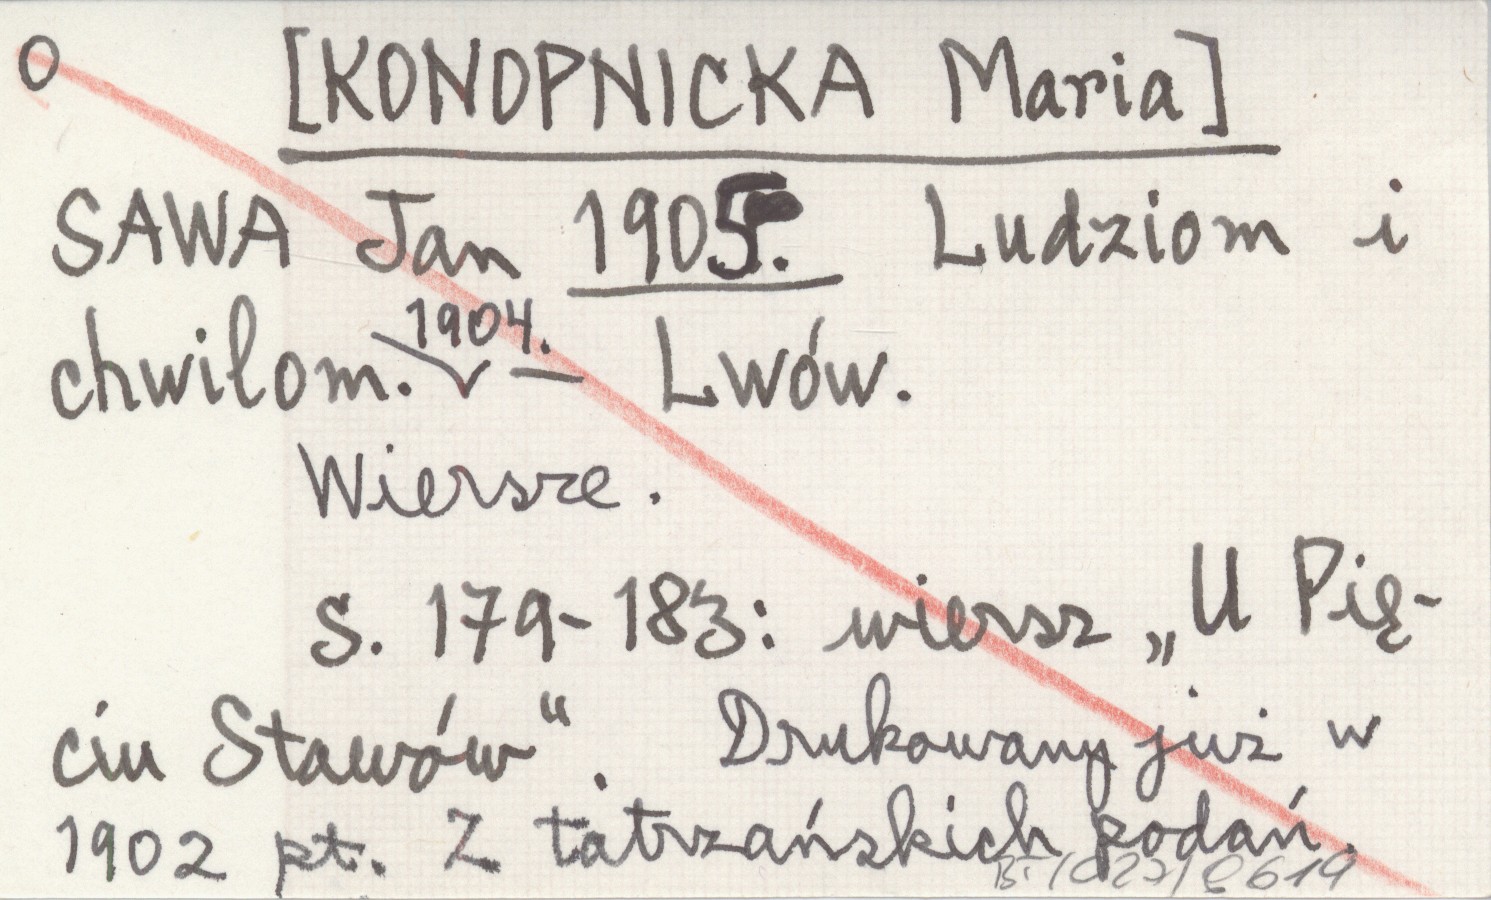 O [KONOPNICKA Maria]
SAWA Jan 1905. Ludziom i
1904.
chwilom. — Lwów.
Wiersze.
s. 179-183: wiersz „U Pię-
ciu Stawów“. Drukowany już w
1902 pt. Z tatrzańskich podań.